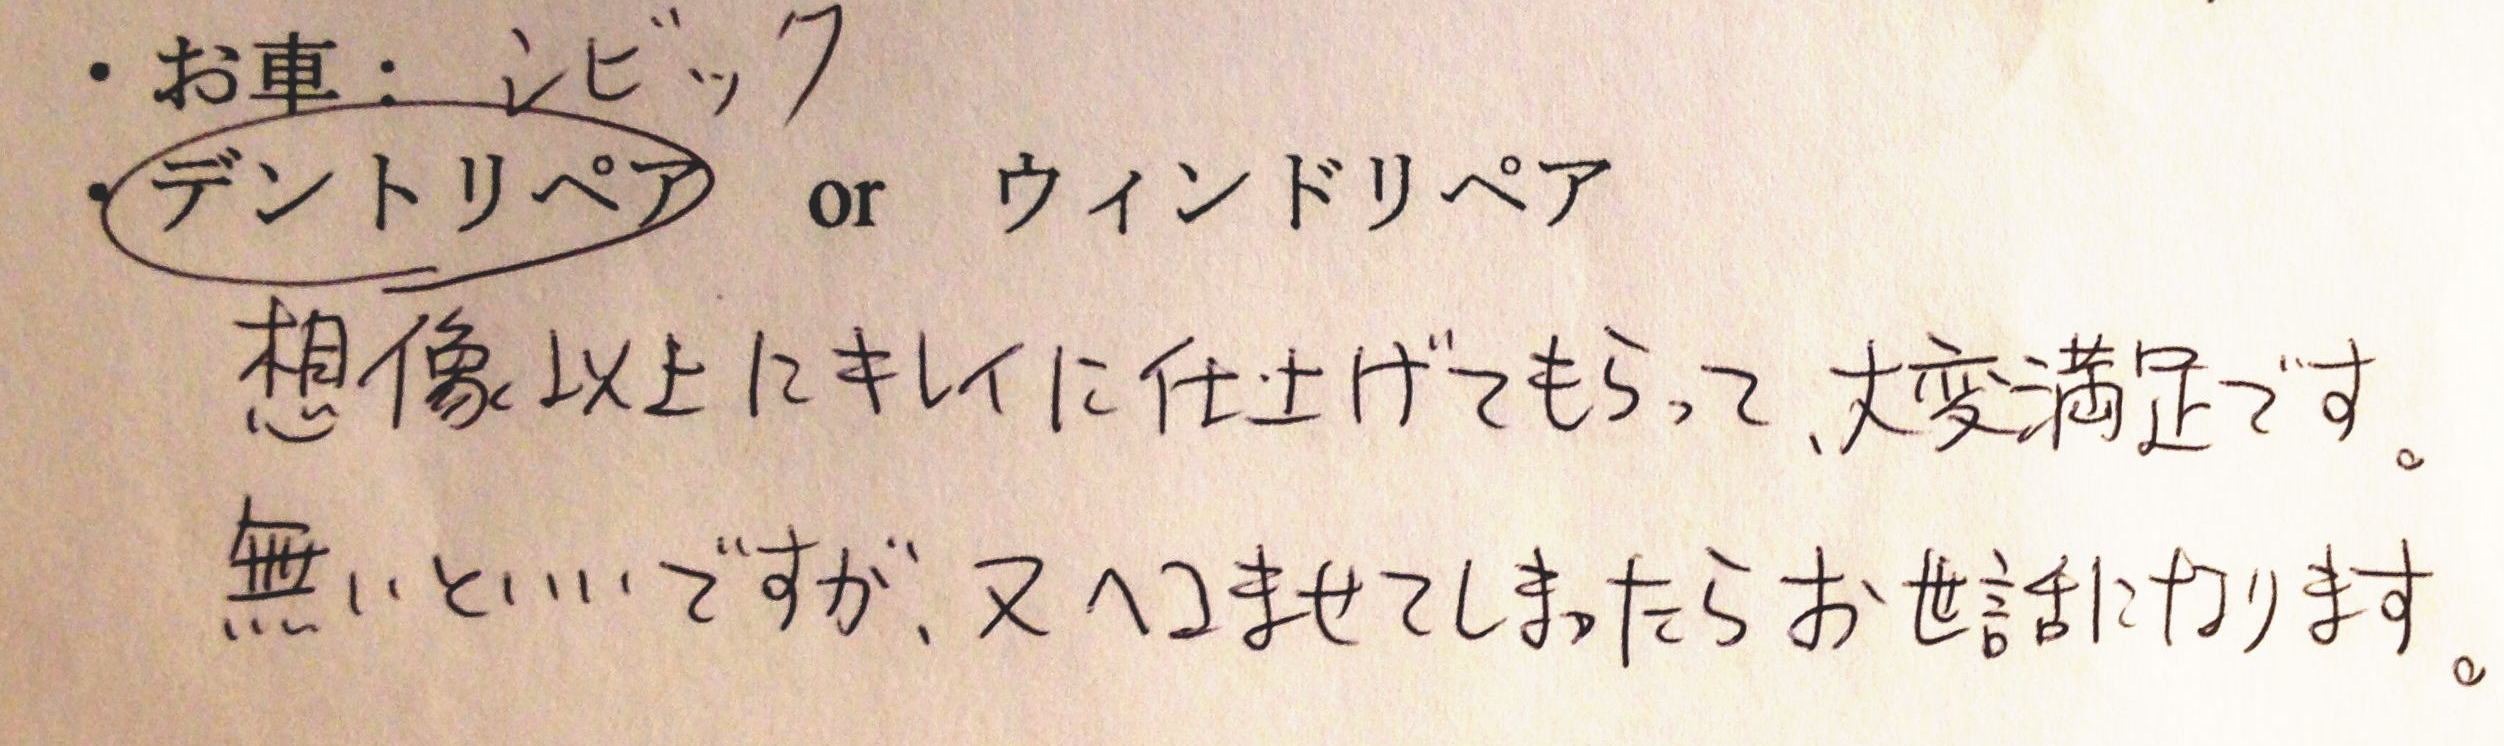 ・お車：シビック
・デントリペア or ウィンドリペア
想像以上にキレイに仕上げてもらって、大変満足です。
無いといいですが、又ヘコませてしまったらお世話になります。